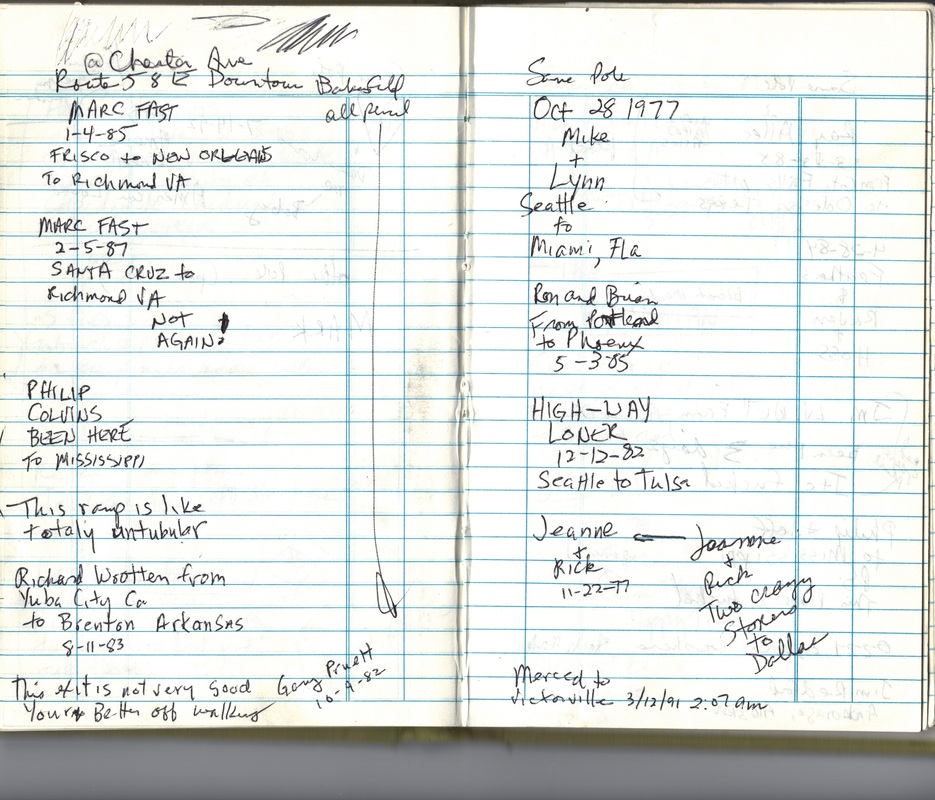 @ Chester Ave
Route 58 E Downtown Bakersfield
all pencil
MARC FAST
1-4-85
FRISCO to NEW ORLEANS
To Richmond VA
MARC FAST
2-5-87
SANTA CRUZ to
Richmond VA
NOT
AGAIN!
PHILIP
COLVINS
BEEN HERE
TO MISSISSIPPI
This ramp is like
totaly untubular
Richard Wootten from
Yuba City Ca
to Brenton Arkansas
8-11-83
This exit is not very good
Your Better off walking
Gary Pruett
10-9-82
Same Pole
Oct 28 1977
Mike
+
Lynn
Seattle
to
Miami, Fla
Ron and Brian
From Portland
to Phoenix
5-3-85
HIGH-WAY
LONER
12-12-82
Seattle to Tulsa
Jeanne
+
Rick
11-22-77
Joanne
+
Rick
Two crazy
Stoners
to
Dallas
Merced to
Victorville 3/12/91 2:07 am